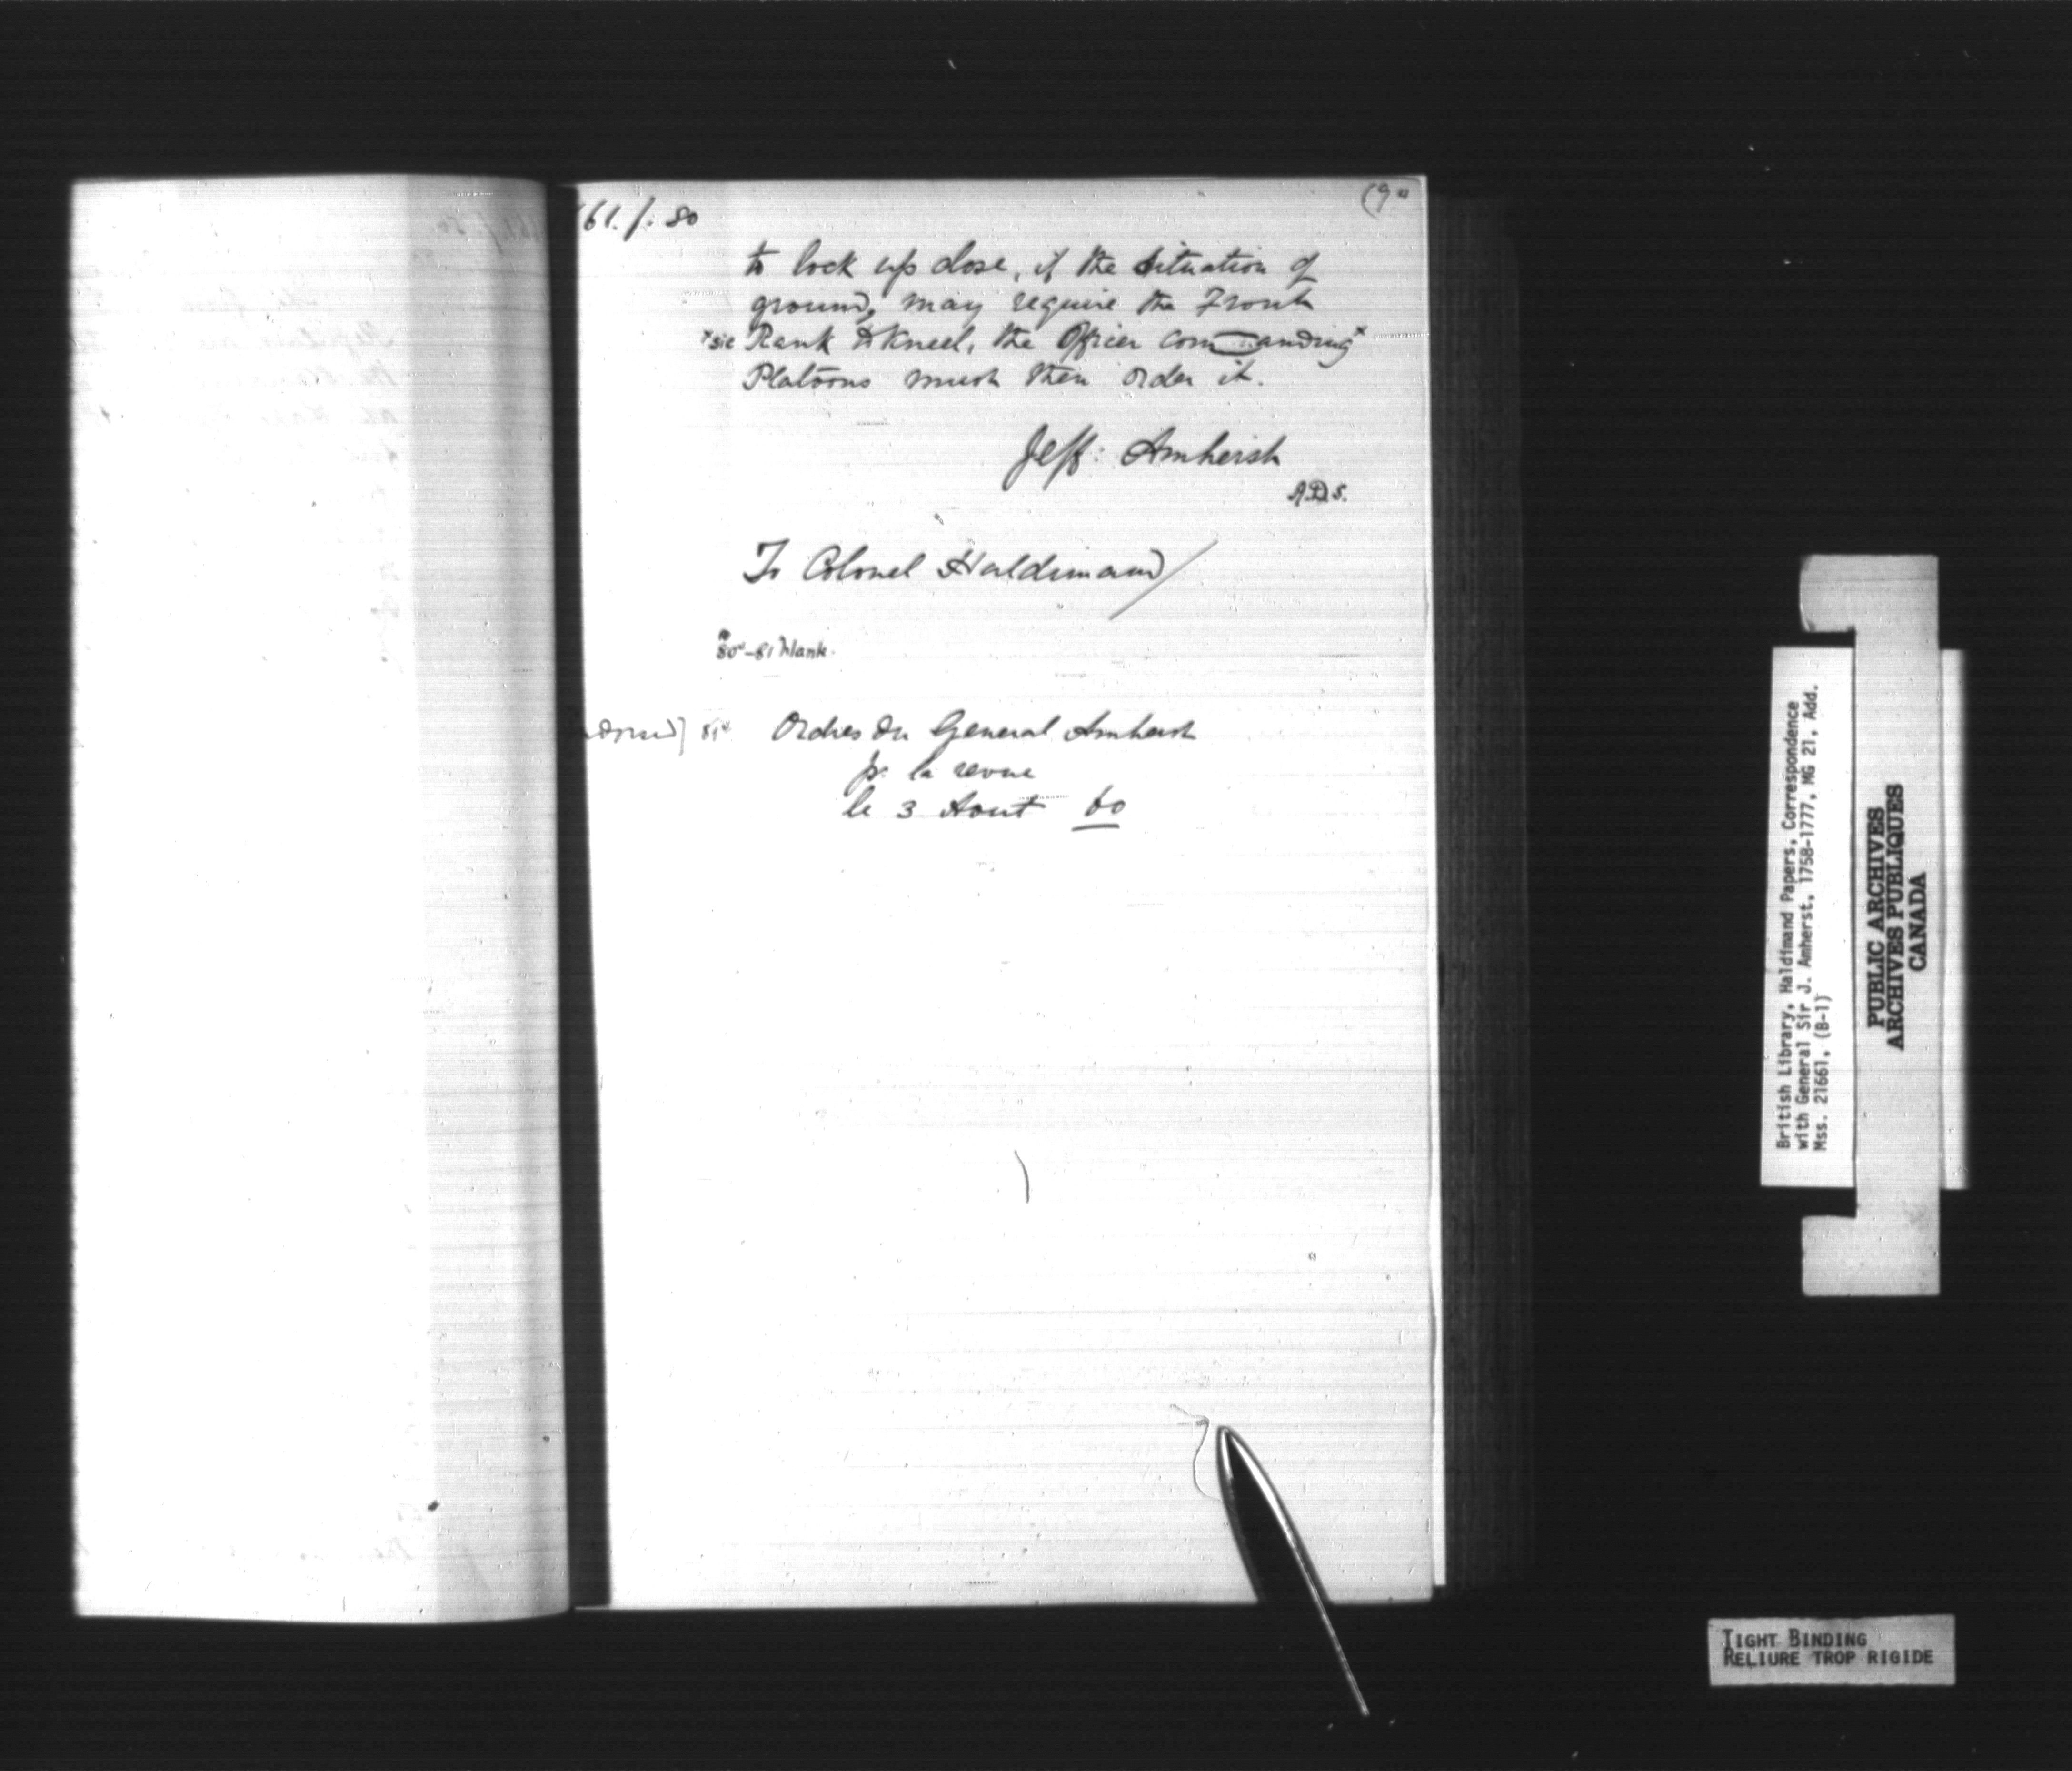 61. f. 80
to lock up close, if the Situation of
ground, may require the Front
x sic Rank to Kneel, the Officer commanding x
Platoons must then order it.
Jeff: Amherst
A.D.S.
To Colonel Haldimand/
80v-81 blank.
81v Ordres du General Amherst
pr. la revue
le 3 Aout 60
British Library, Haldimand Papers, Correspondence
with General Sir J. Amherst, 1758-1777, MG 21, Add.
Mss. 21661, (B-1)
PUBLIC ARCHIVES
ARCHIVES PUBLIQUES
CANADA
TIGHT BINDING
RELIURE TROP RIGIDE